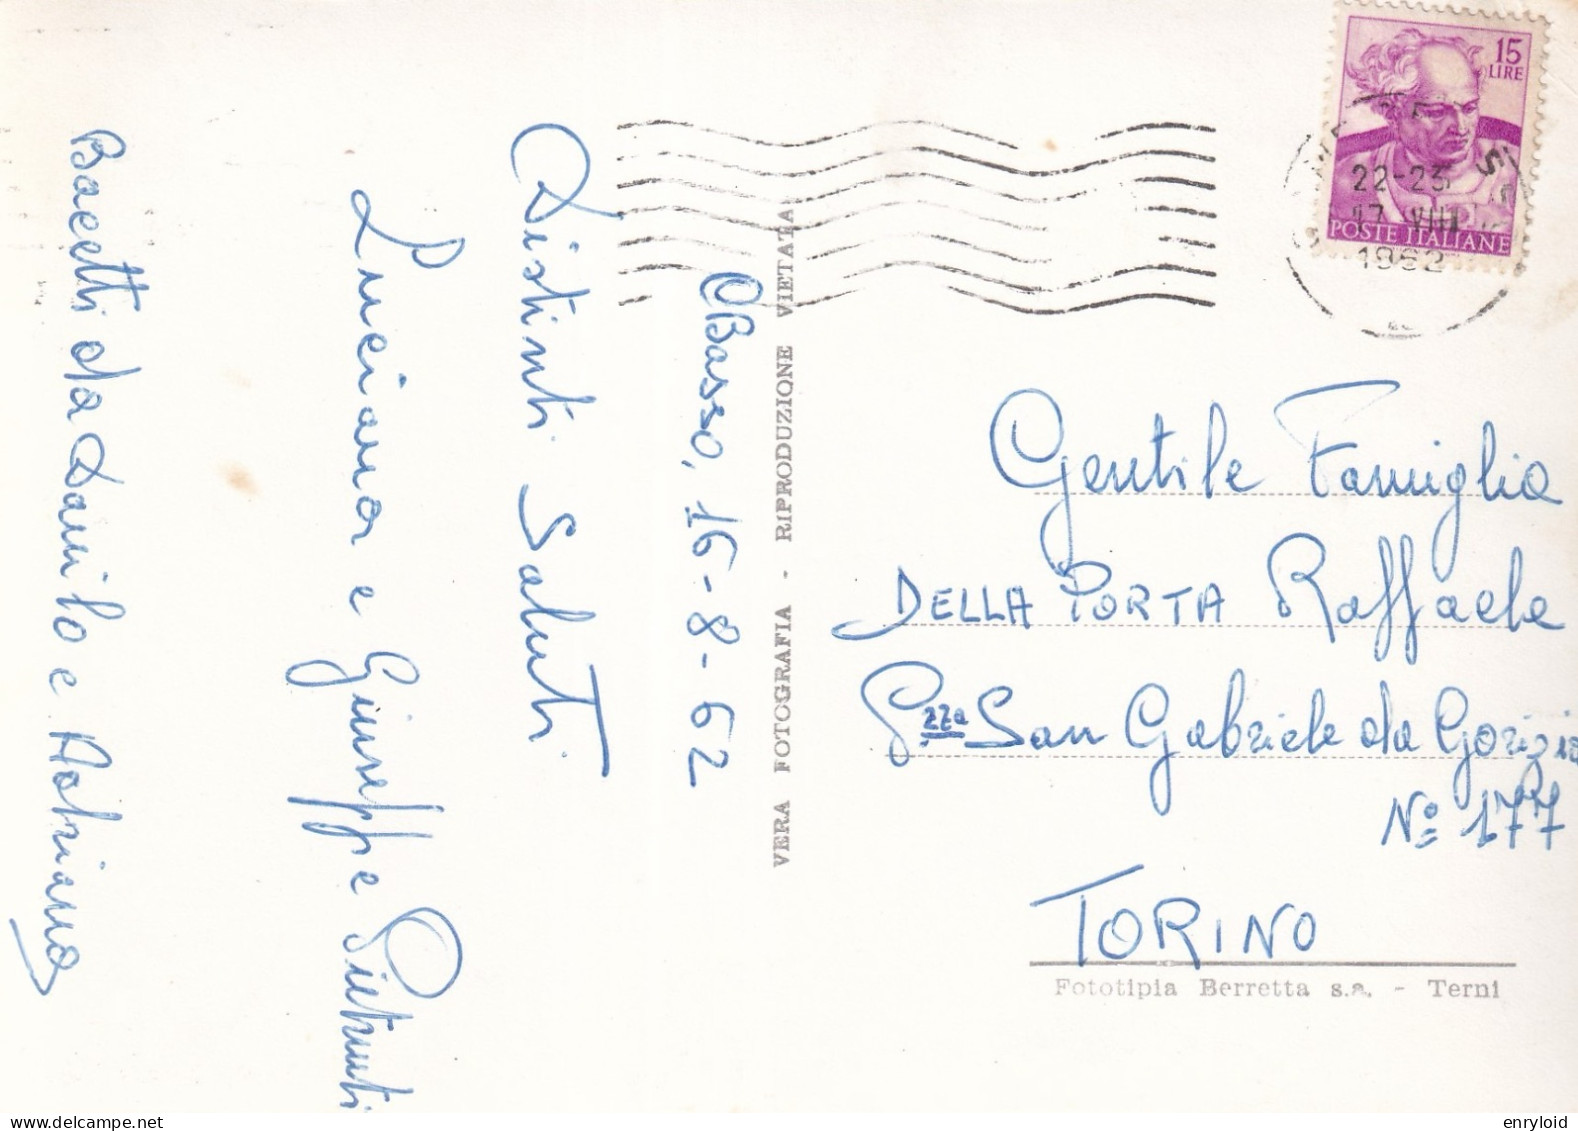 15
LIRE
POSTE ITALIANE
22-23
17 VIII
1962
CBasso, 16-8-62
Distinti Saluti
Luciana e Giuseppe
Bacetti da Danilo e Adriana
VERA FOTOGRAFIA - RIPRODUZIONE VIETATA
Gentile Famiglia
DELLA PORTA Raffaele
P.zza San Gabriele da Gorizia
Nº 177
TORINO
Fototipia Berretta s.a. - Terni
delcampe.net
enryloid